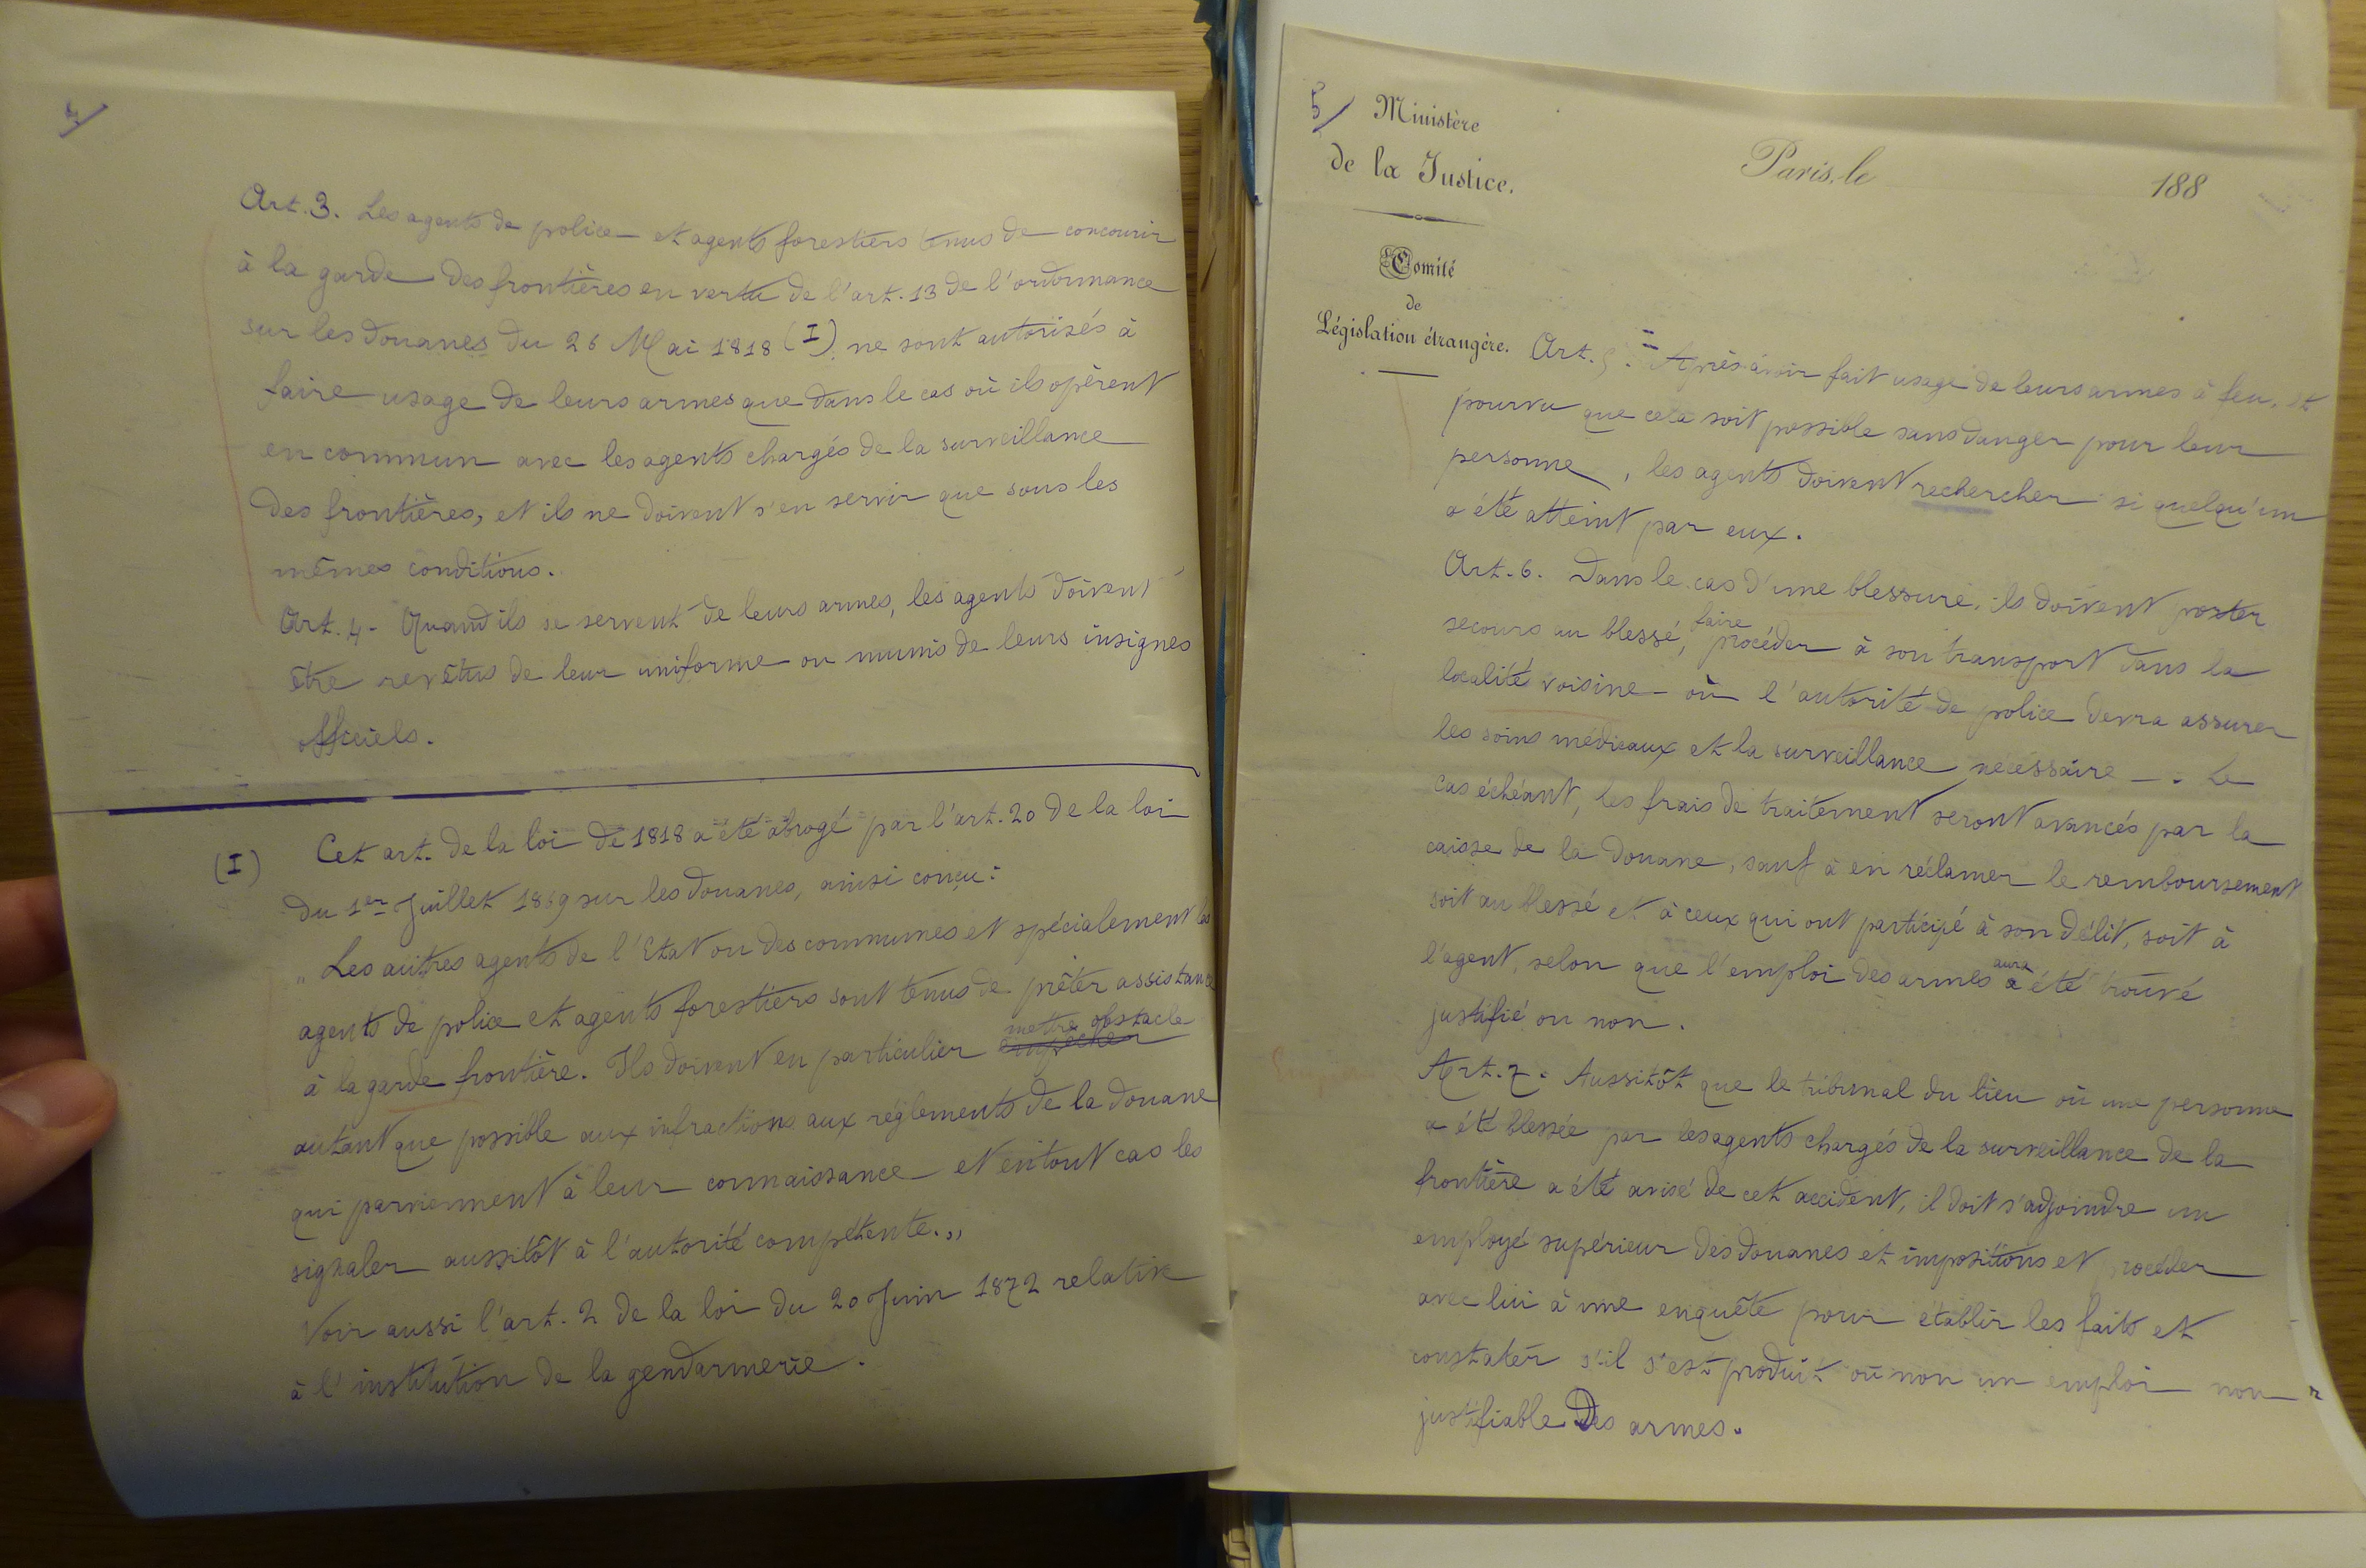 4/
Art. 3. Les agents de police et agents forestiers tenus de concourir
à la garde des frontières en vertu de l'art. 13 de l'ordonnance
sur les douanes du 26 Mai 1818 (I) ne sont autorisés à
faire usage de leurs armes que dans le cas où ils opèrent
en commun avec les agents chargés de la surveillance
des frontières, et ils ne doivent s'en servir que sous les
mêmes conditions.
Art. 4 - Quand ils se servent de leurs armes, les agents doivent
être revêtus de leur uniforme ou munis de leurs insignes
officiels.
(I) Cet art. de la loi de 1818 a été abrogé par l'art. 20 de la loi
du 1er Juillet 1869 sur les douanes, ainsi conçu :
„ Les autres agents de l'Etat ou des communes et spécialement les
agents de police et agents forestiers sont tenus de prêter assistance
à la garde frontière. Ils doivent en particulier empêcher mettre obstacle
autant que possible aux infractions aux règlements de la douane
qui parviennent à leur connaissance et en tout cas les
signaler aussitôt à l'autorité compétente. „
Voir aussi l'art. 2 de la loi du 20 Juin 1872 relative
à l'institution de la gendarmerie.
5/ Ministère
de la Justice.
Paris, le 188
Comité
de
Législation étrangère.
Art. 5. = Après avoir fait usage de leurs armes à feu, et
pourvu que cela soit possible sans danger pour leur
personne, les agents doivent rechercher si quelqu'un
a été atteint par eux.
Art. 6. Dans le cas d'une blessure, ils doivent porter
secours au blessé, faire procéder à son transport dans la
localité voisine où l'autorité de police devra assurer
les soins médicaux et la surveillance nécessaire -. Le
cas échéant, les frais de traitement seront avancés par la
caisse de la douane, sauf à en réclamer le remboursement
soit au blessé et à ceux qui ont participé à son délit, soit à
l'agent, selon que l'emploi des armes a aura été trouvé
justifié ou non.
Art. 7. Aussitôt que le tribunal du lieu où une personne
a été blessée par les agents chargés de la surveillance de la
frontière a été avisé de cet accident, il doit s'adjoindre un
employé supérieur des douanes et impositions et procéder
avec lui à une enquête pour établir les faits et
constater s'il s'est produit ou non un emploi non
justifiable des armes.